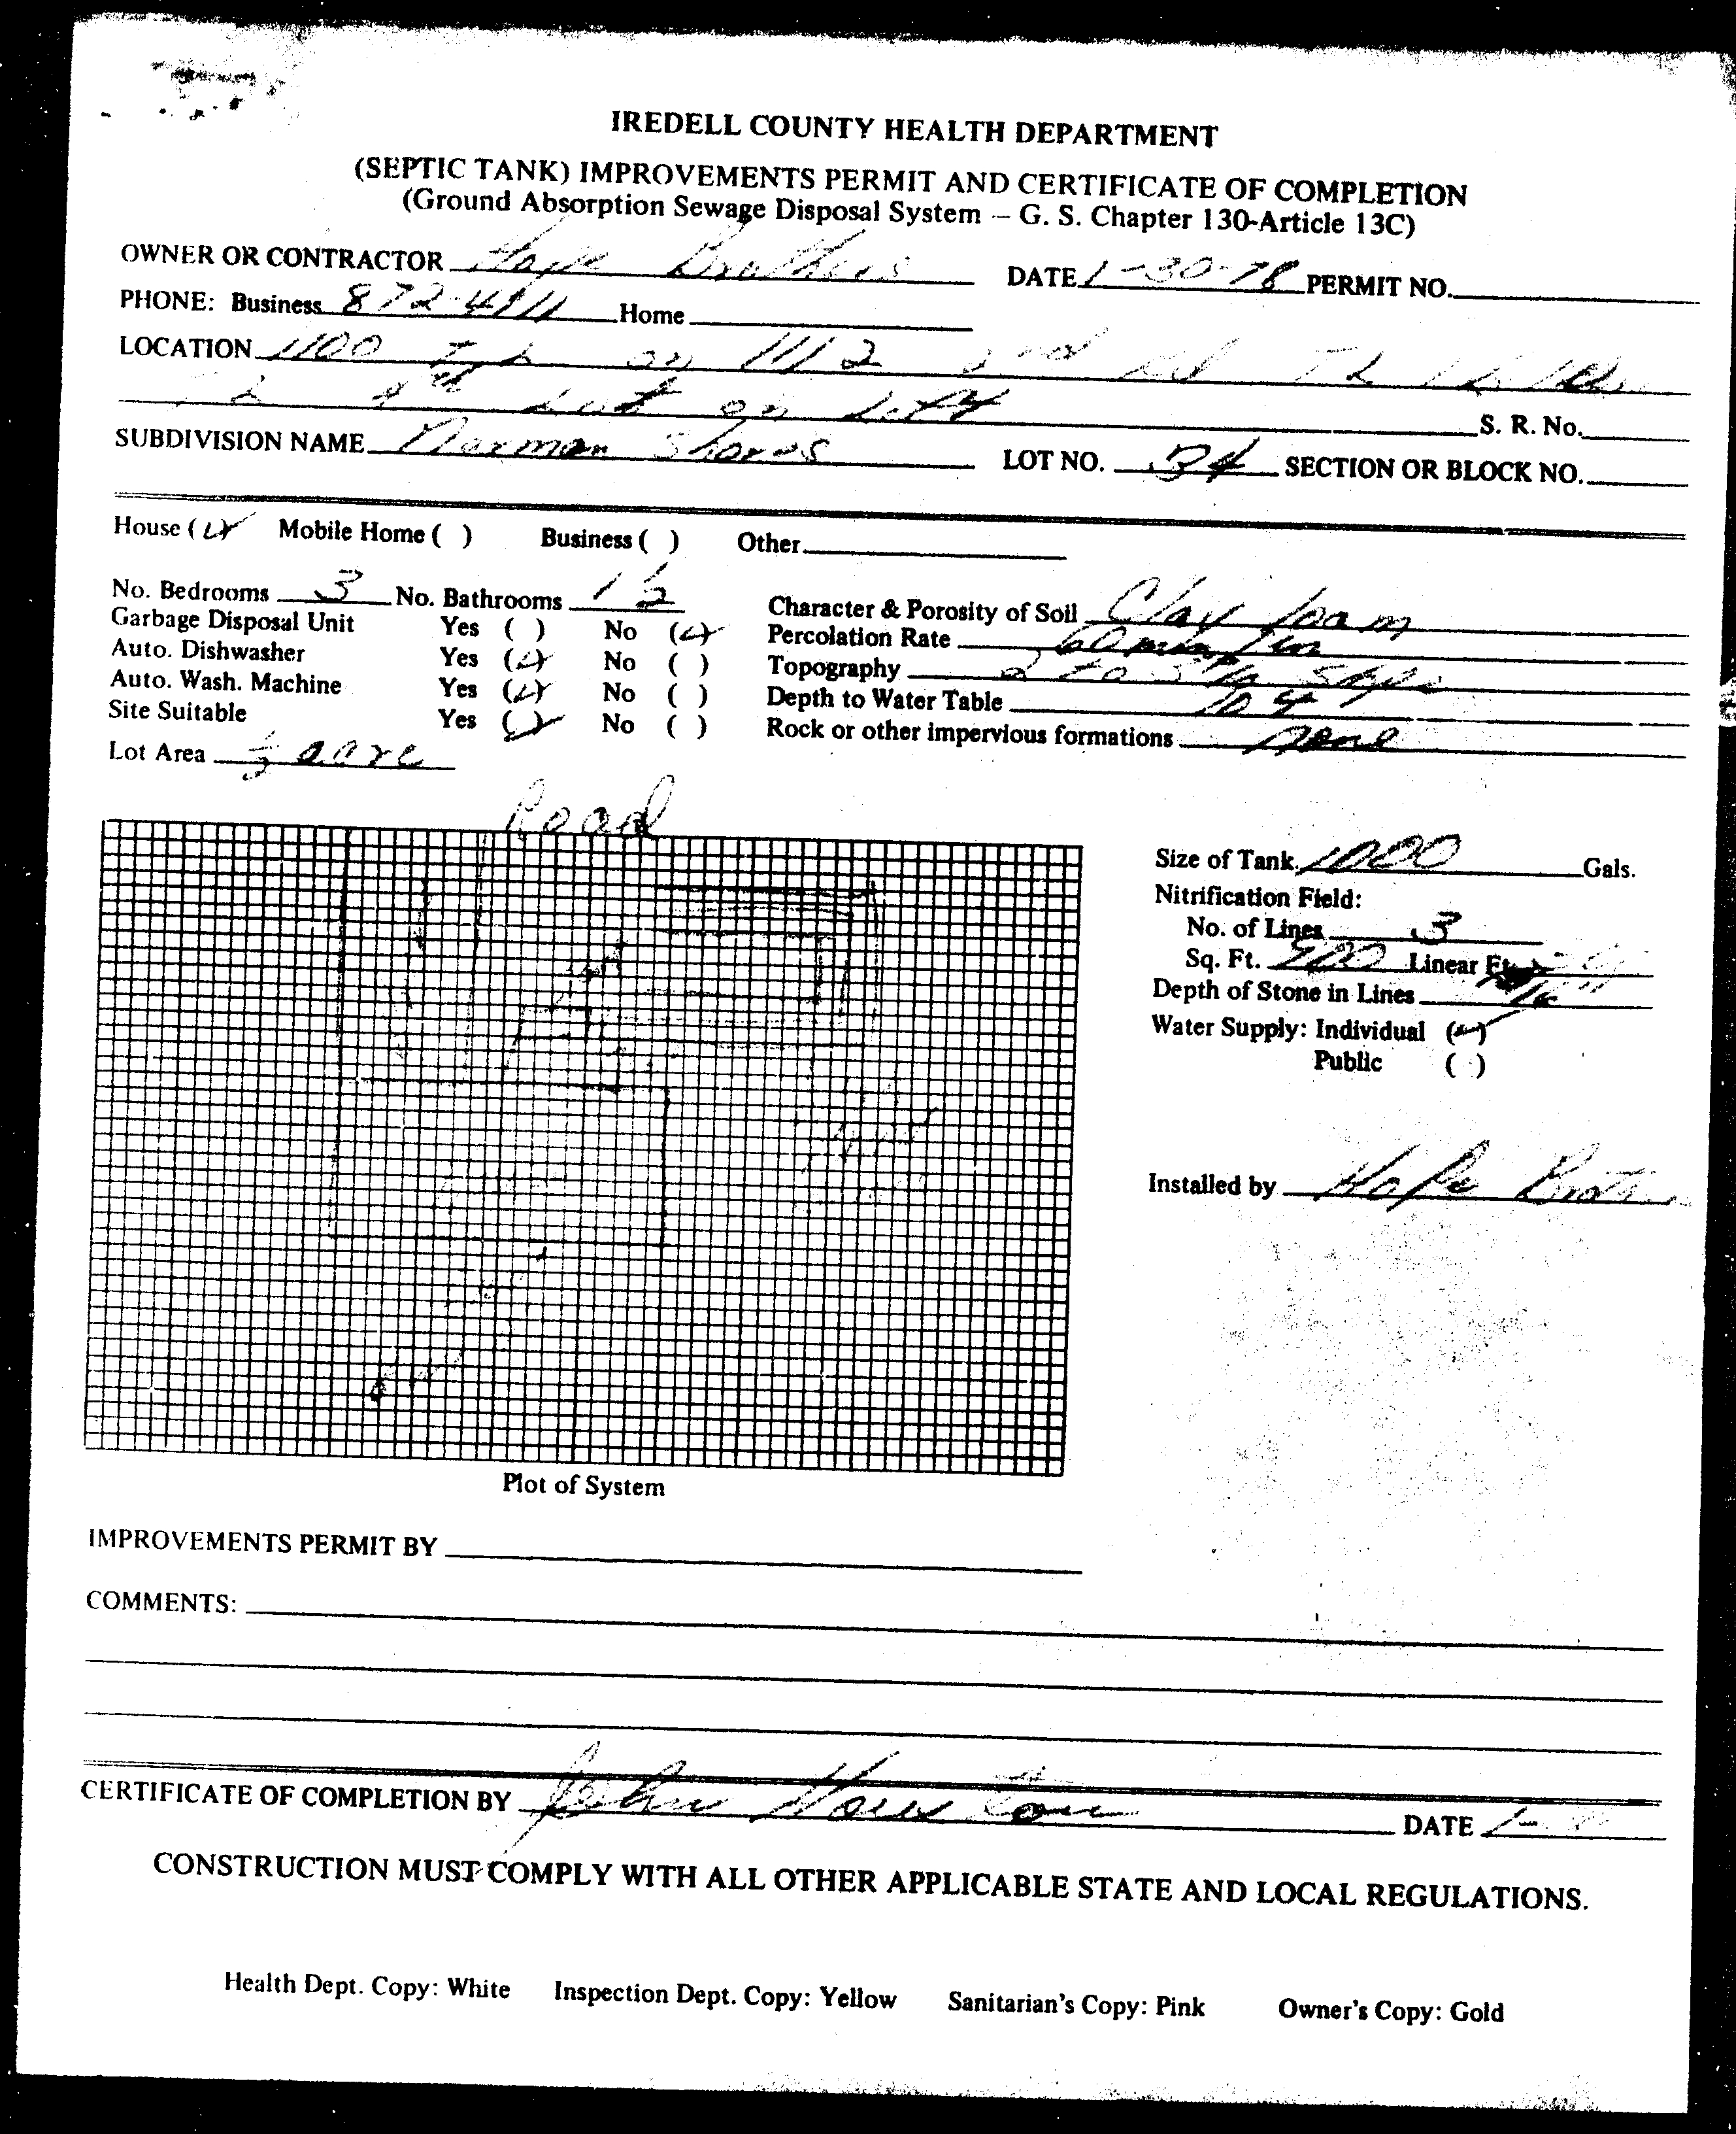 IREDELL COUNTY HEALTH DEPARTMENT
(SEPTIC TANK) IMPROVEMENTS PERMIT AND CERTIFICATE OF COMPLETION
(Ground Absorption Sewage Disposal System – G. S. Chapter 130-Article 13C)
OWNER OR CONTRACTOR Hope Brothers DATE 1-30-78 PERMIT NO.
PHONE: Business 872-4111 Home
LOCATION 1100 on 1112 2nd rd
lot on left S. R. No.
SUBDIVISION NAME Norman Shores LOT NO. 34 SECTION OR BLOCK NO.
House (✓) Mobile Home ( ) Business ( ) Other
No. Bedrooms 3 No. Bathrooms 1 ½ Character & Porosity of Soil Clay loam
Garbage Disposal Unit Yes ( ) No (✓) Percolation Rate 60 min/in
Auto. Dishwasher Yes (✓) No ( ) Topography 2 to 5% Slope
Auto. Wash. Machine Yes (✓) No ( ) Depth to Water Table
Site Suitable Yes (✓) No ( ) Rock or other impervious formations none
Lot Area ½ acre
Road
Size of Tank 1000 Gals.
Nitrification Field:
No. of Lines 3
Sq. Ft. 900 Linear Ft.
Depth of Stone in Lines
Water Supply: Individual (✓)
Public ( )
Installed by Hope Brothers
Plot of System
IMPROVEMENTS PERMIT BY
COMMENTS:
CERTIFICATE OF COMPLETION BY John Houston DATE 1-
CONSTRUCTION MUST COMPLY WITH ALL OTHER APPLICABLE STATE AND LOCAL REGULATIONS.
Health Dept. Copy: White Inspection Dept. Copy: Yellow Sanitarian's Copy: Pink Owner's Copy: Gold